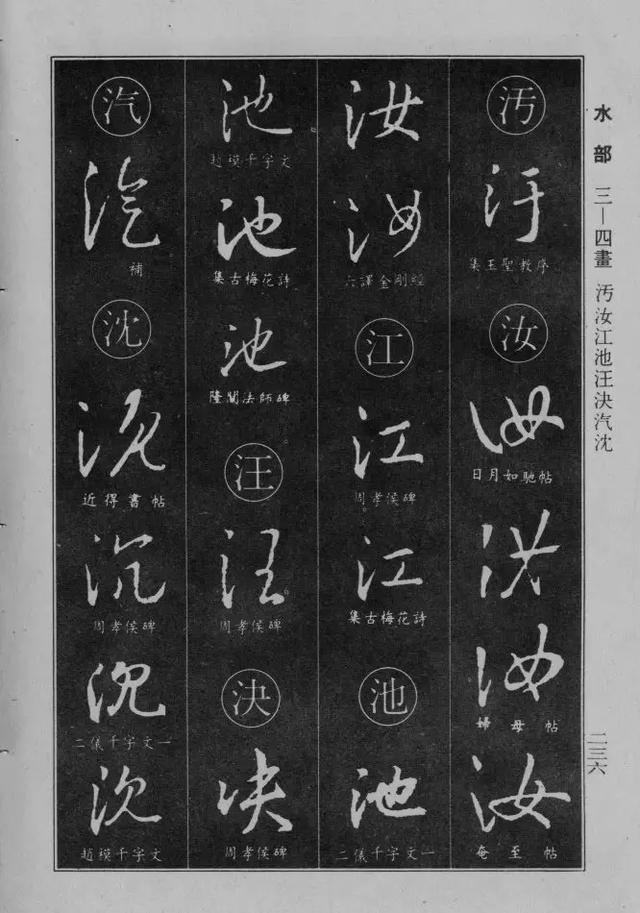 水部 三—四畫 汚汝江池汪決汽沈
二三六
汚
汚
集王聖教序
汝
汝
日月如馳帖
汝
汝
婦母帖
汝
奄至帖
汝
汝
六譯金剛經
江
江
周孝侯碑
江
集古梅花詩
池
池
二儀千字文一
池
趙模千字文
池
集古梅花詩
池
隆闡法師碑
汪
汪
周孝侯碑
決
決
周孝侯碑
汽
汽
補
沈
沈
近得書帖
沈
周孝侯碑
沈
二儀千字文一
沈
趙模千字文